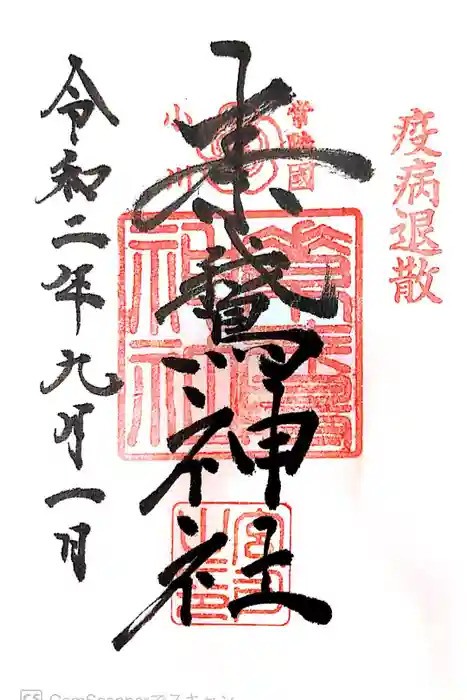 疫病退散
常陸國
小川
素鵞神社
令和二年九月一日
CamScannerでスキャン